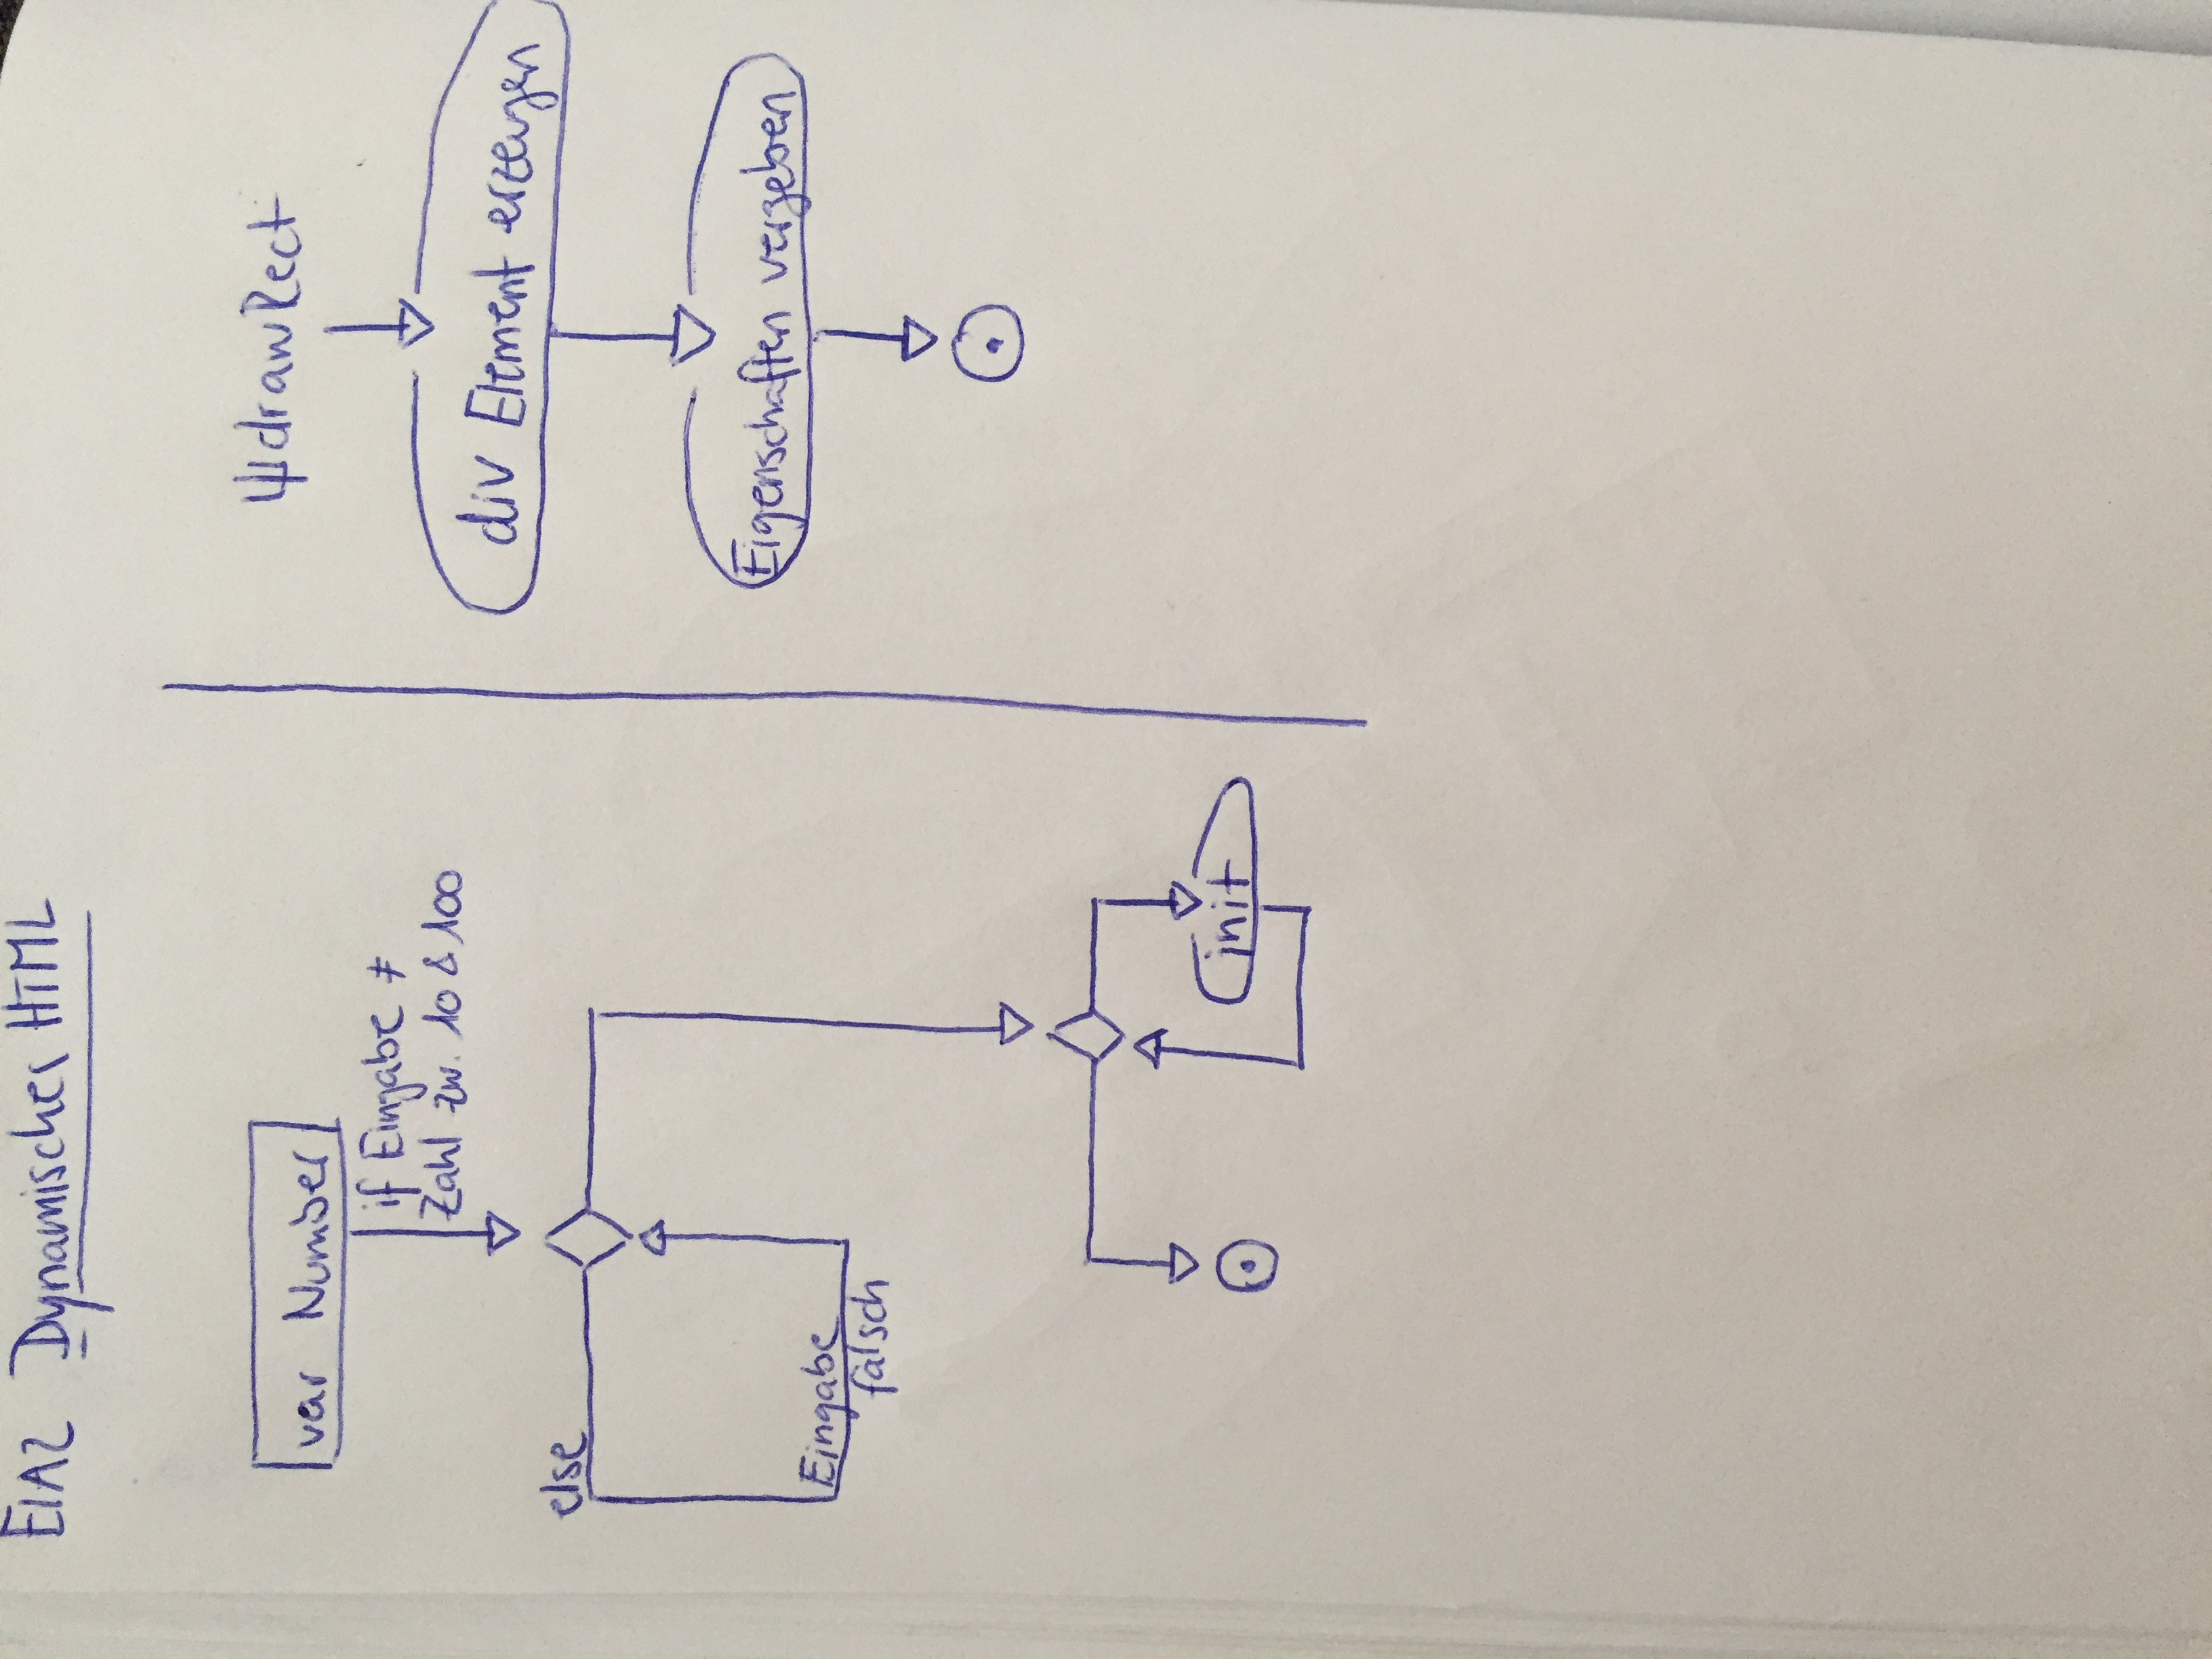 EIA2 Dynamisches HTML
var Number
if Eingabe ≠
Zahl zw. 10 & 100
else
Eingabe
falsch
init
drawRect
div Element erzeugen
Eigenschaften vergeben